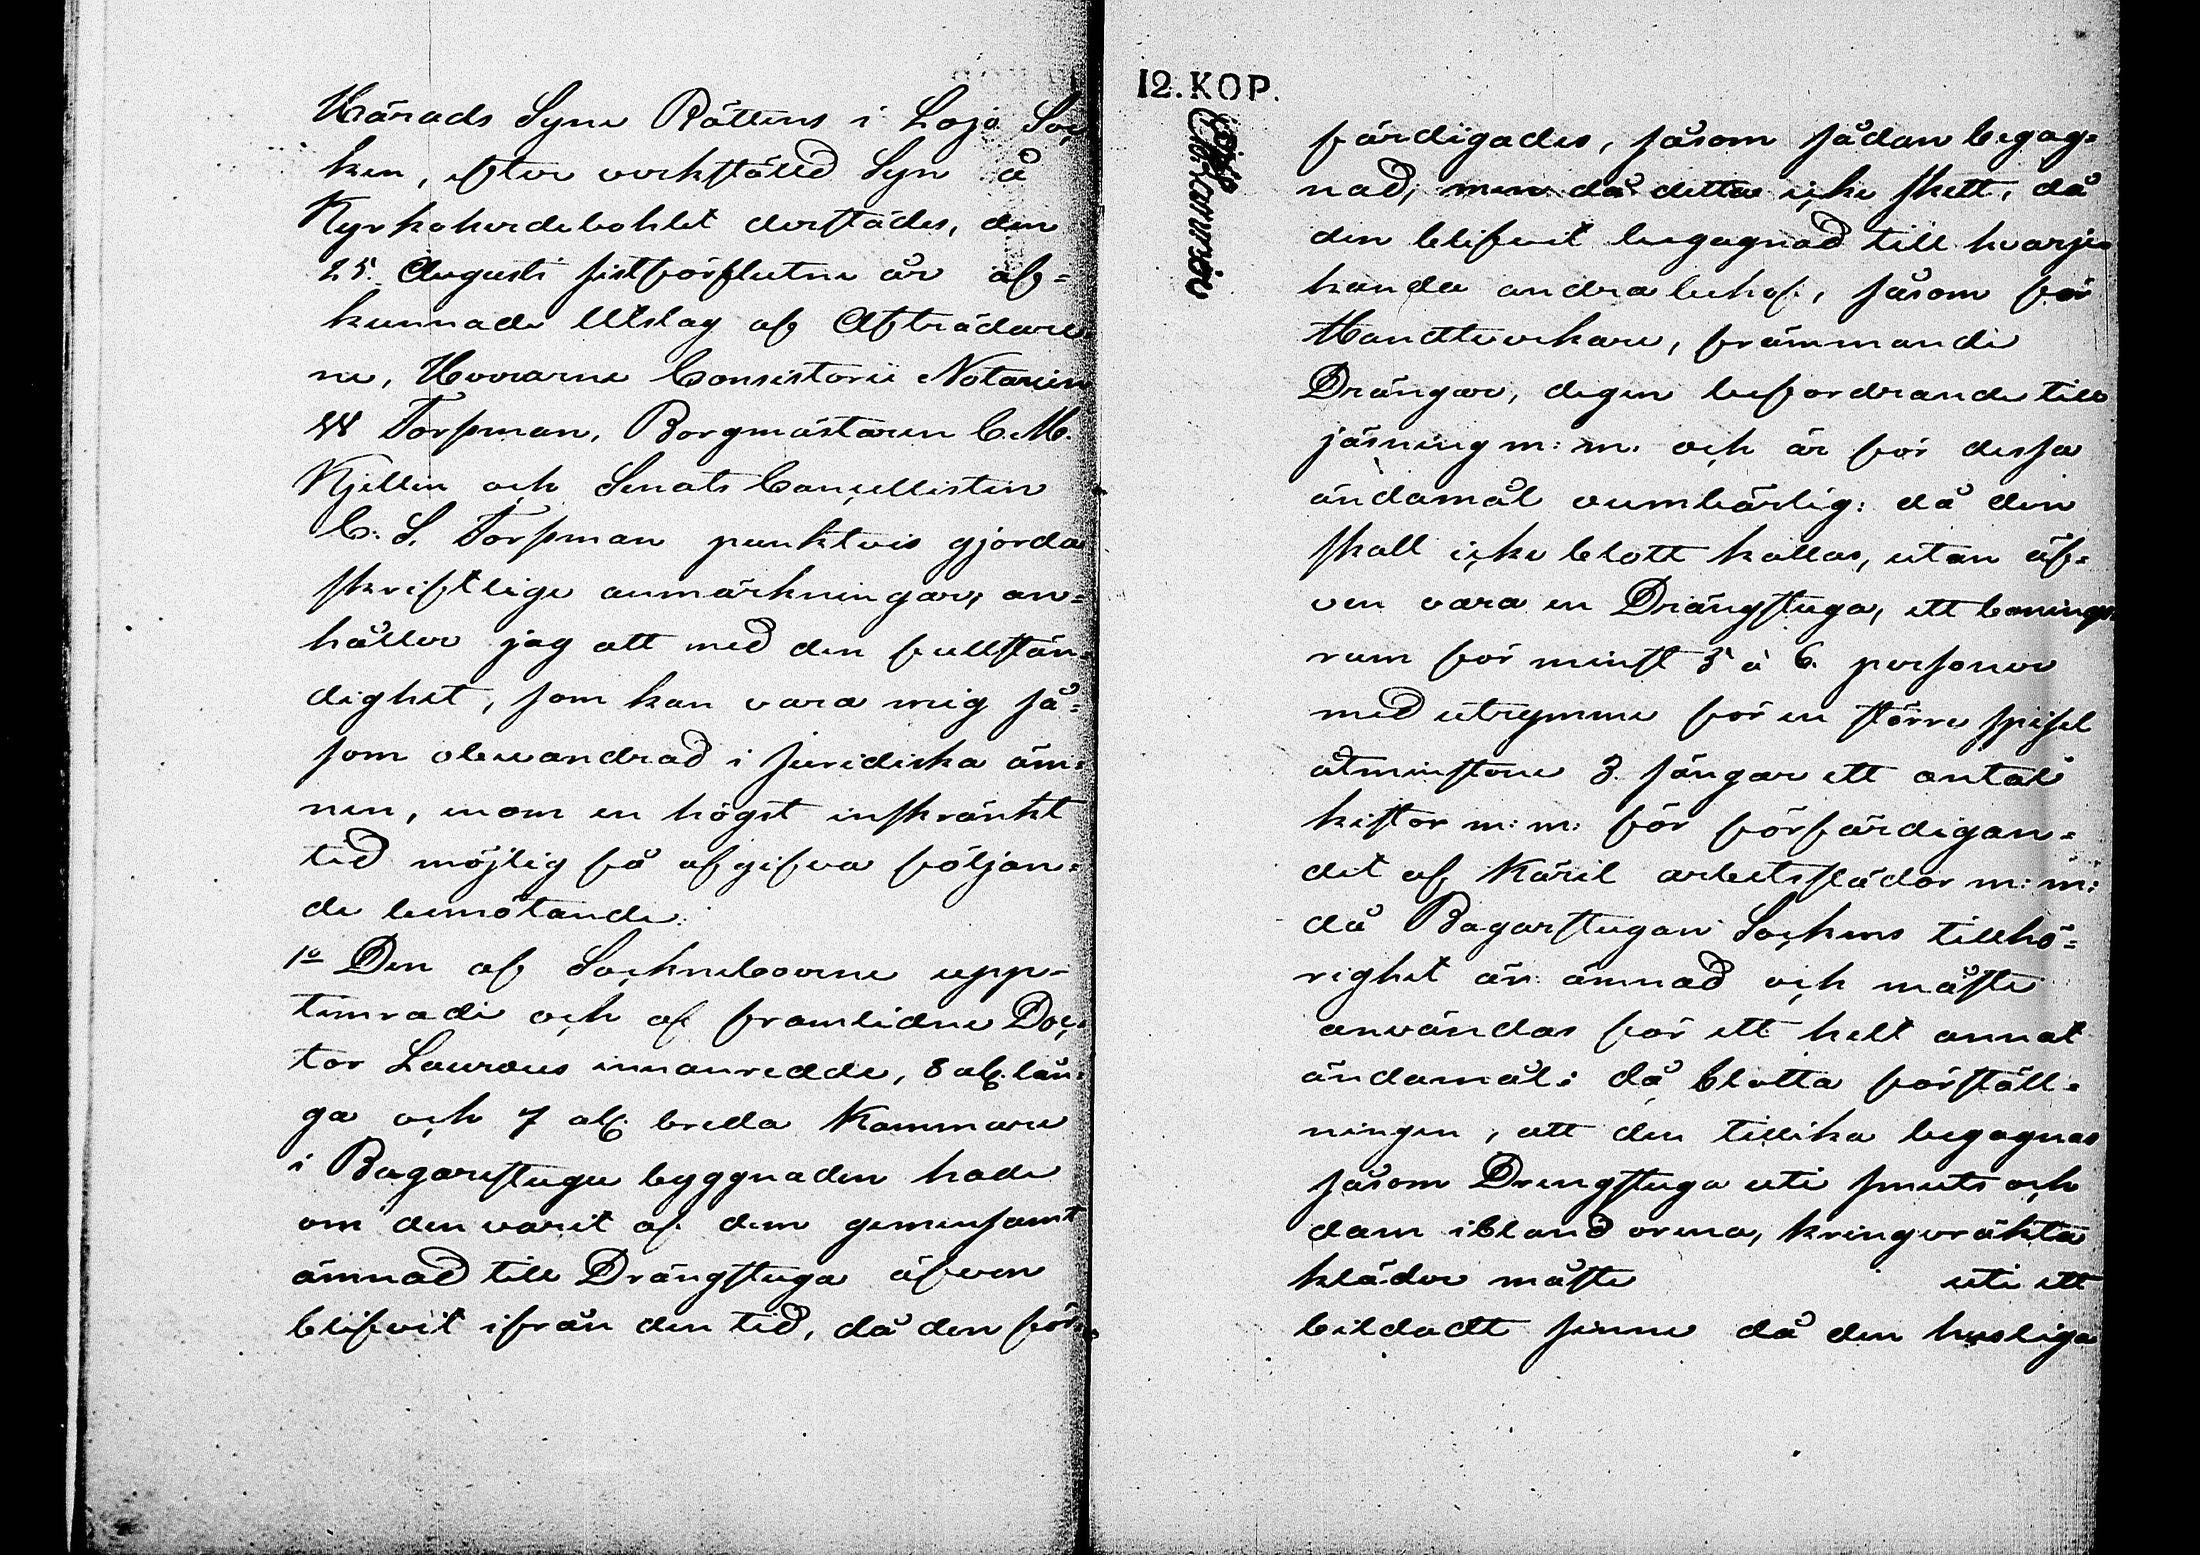 Härads Syne Rättens i Lojo Soc
ken, efter verkställd Syn å
Kyrkoherdebohlet derstädes, den
25. Augusti sistförflutne år af=
kunnade Utslag af Afträdare
ne, Herrarne Consistorii Notarien
W Forsman, Borgmästaren C. M.
Kjellin och Senats Cancellisten
C. S. Forsman punktvis gjorda
skriftlige anmärkningar, an=
håller jag att med den fullstän=
dighet, som kan vara mig så=
som obevandrad i juridiska äm=
nen, inom en högst inskränkt
tid möjlig få afgifva följan=
de bemötande:
1o Den af Sockneboerne upp=
timrade och af framlidne Doc=
tor Lauræus innanredde, 8 aln. lån=
ga och 7 aln. breda Kammare
i Bagarestugu byggnaden hade
om den varit af dem gemensamt
ämnad till Drängstuga äfven
blifvit ifrån den tid, då den för=
12. KOP.
färdigades, såsom sådan begag=
nad, men då detta icke skett, då
den blifvit begagnad till hvarje=
handa andra behof, såsom för
Handtverkare, främmande
Drängar, degen befordrande till
jäsning m: m. och är för dessa
ändamål oumbärlig: då den
skall icke blott kallas, utan äf=
ven vara en Drängstuga, ett bonings
rum för minst 5 à 6. personer
med utrymme för en större spisel
åtminstone 3. sängar ett antal
kistor m: m: för förfärdigan=
det af Käril arbetsslädor m: m:
då Bagarstugan Sockens tillhö=
righet är ämnad och måste
användas för ett helt annat
ändamål: då blotta förställ=
ningen, att den tillika begagnas
såsom Drengstuga uti smuts och
dam ibland orena, kringvräkta
kläder måste uti ett
bildadt sinne då den husliga